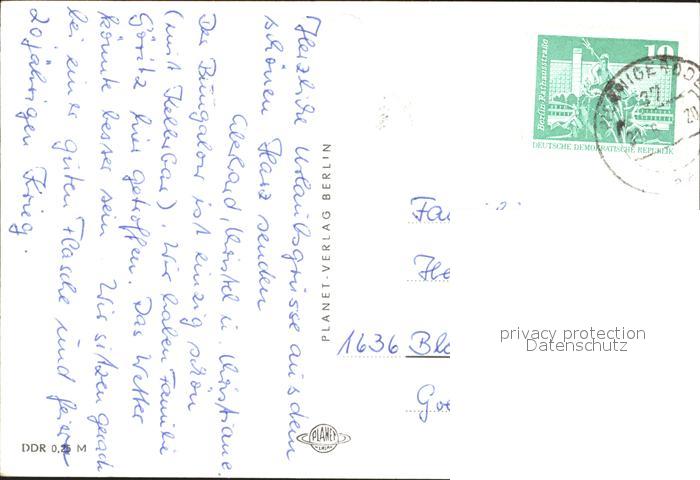 Herzliche Urlaubsgrüsse aus dem
schönen Harz senden
Ekkhard, Christel u. Christiane.
Der Bungalow ist einzig schön
(mit Kellerbar). Wir haben Familie
Göritz hier getroffen. Das Wetter
könnte besser sein. Wir sitzen gerade
bei einer guten Flasche und feiern
20jährigen Krieg.
DDR 0,25 M
PLANET-VERLAG BERLIN
PLANET
Berlin-Rathausstraße
10
DEUTSCHE DEMOKRATISCHE REPUBLIK
Fa
He
1636 Bla
privacy protection
Datenschutz